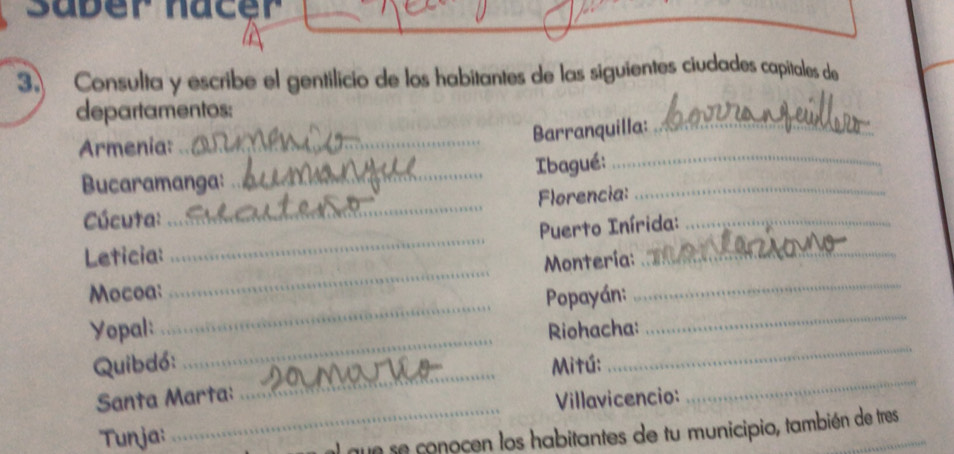 Saber hacer
A
3. Consulta y escribe el gentilicio de los habitantes de las siguientes ciudades capitales de
departamentos:
Armenia: armenico
Bucaramanga: bumangue
Cúcuta: cucuteño
Leticia:
Mocoa:
Yopal:
Quibdó:
Santa Marta: samario
Tunja:
Barranquilla: borranqeillero
Ibagué:
Florencia:
Puerto Inírida:
Montería: montariano
Popayán:
Riohacha:
Mitú:
Villavicencio:
que se conocen los habitantes de tu municipio, también de tres